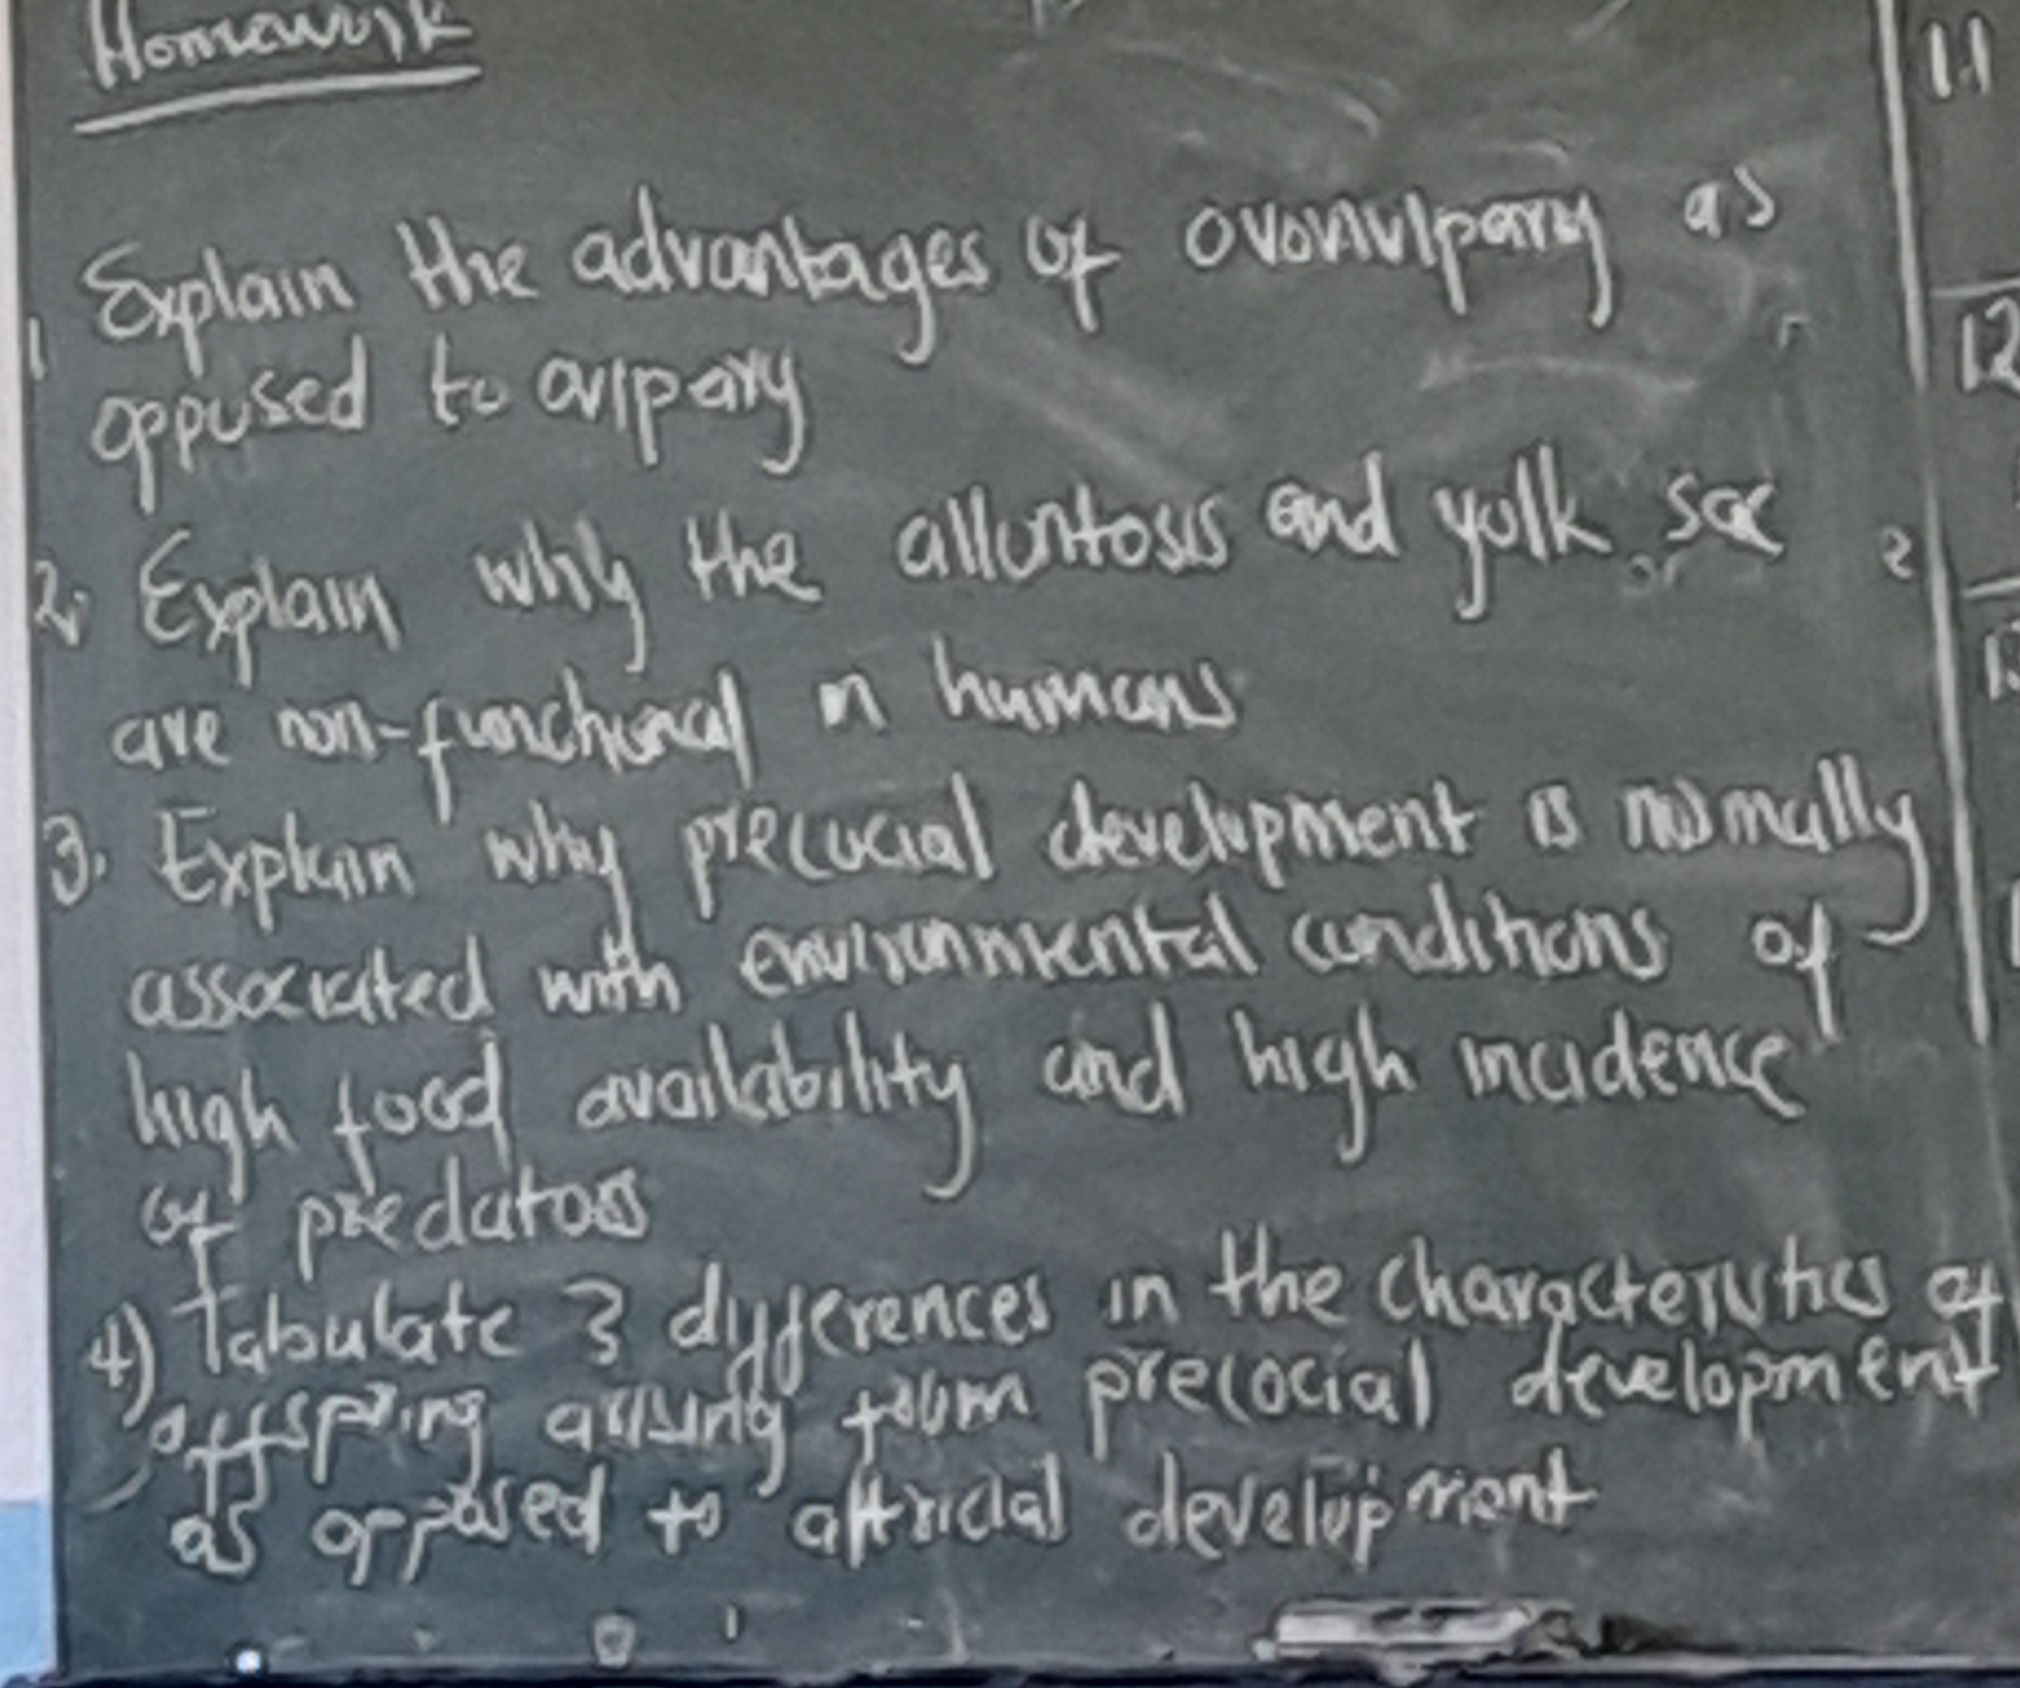 Homework
1 Explain the advantages of ovovivipary as
opposed to ovipary
2. Explain why the allantosis and yolk sac
are non-functional in humans
3. Explain why precocial development is normally
associated with environmental conditions of
high food availability and high incidence
of predators
4) Tabulate 3 differences in the characteristics of
offspring arising from precocial development
as opposed to altricial development
11
12